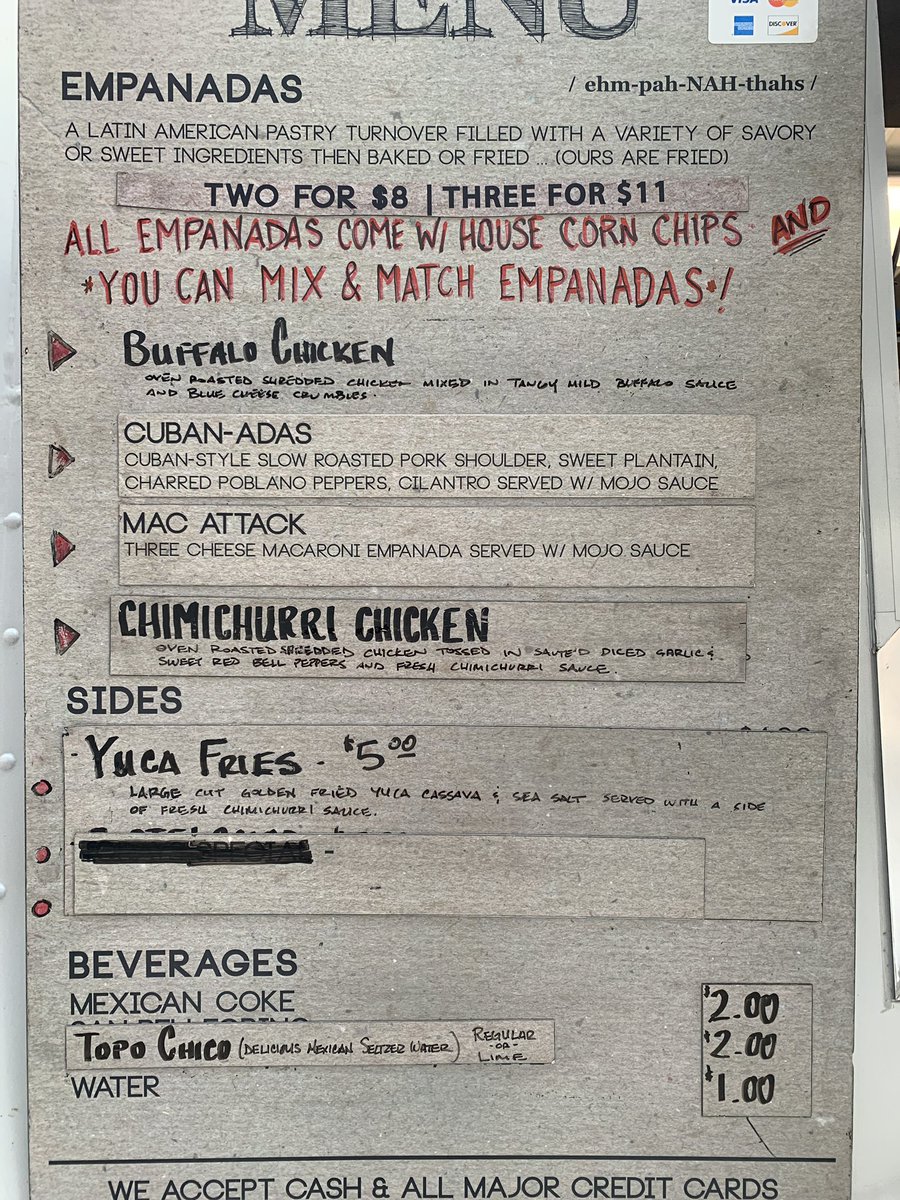 MENU
VISA
DISCOVER
EMPANADAS
/ ehm-pah-NAH-thahs /
A LATIN AMERICAN PASTRY TURNOVER FILLED WITH A VARIETY OF SAVORY
OR SWEET INGREDIENTS THEN BAKED OR FRIED ... (OURS ARE FRIED)
TWO FOR $8 | THREE FOR $11
ALL EMPANADAS COME W/ HOUSE CORN CHIPS AND
*YOU CAN MIX & MATCH EMPANADAS*!
BUFFALO CHICKEN
OVEN ROASTED SHREDDED CHICKEN MIXED IN TANGY MILD BUFFALO SAUCE
AND BLUE CHEESE CRUMBLES.
CUBAN-ADAS
CUBAN-STYLE SLOW ROASTED PORK SHOULDER, SWEET PLANTAIN,
CHARRED POBLANO PEPPERS, CILANTRO SERVED W/ MOJO SAUCE
MAC ATTACK
THREE CHEESE MACARONI EMPANADA SERVED W/ MOJO SAUCE
CHIMICHURRI CHICKEN
OVEN ROASTED SHREDDED CHICKEN TOSSED IN SAUTE'D DICED GARLIC &
SWEET RED BELL PEPPERS AND FRESH CHIMICHURRI SAUCE.
SIDES
YUCA FRIES - $5.00
LARGE CUT GOLDEN FRIED YUCA CASSAVA & SEA SALT SERVED WITH A SIDE
OF FRESH CHIMICHURRI SAUCE.
BEVERAGES
MEXICAN COKE $2.00
TOPO CHICO (DELICIOUS MEXICAN SELTZER WATER) REGULAR -OR- LIME $2.00
WATER $1.00
WE ACCEPT CASH & ALL MAJOR CREDIT CARDS